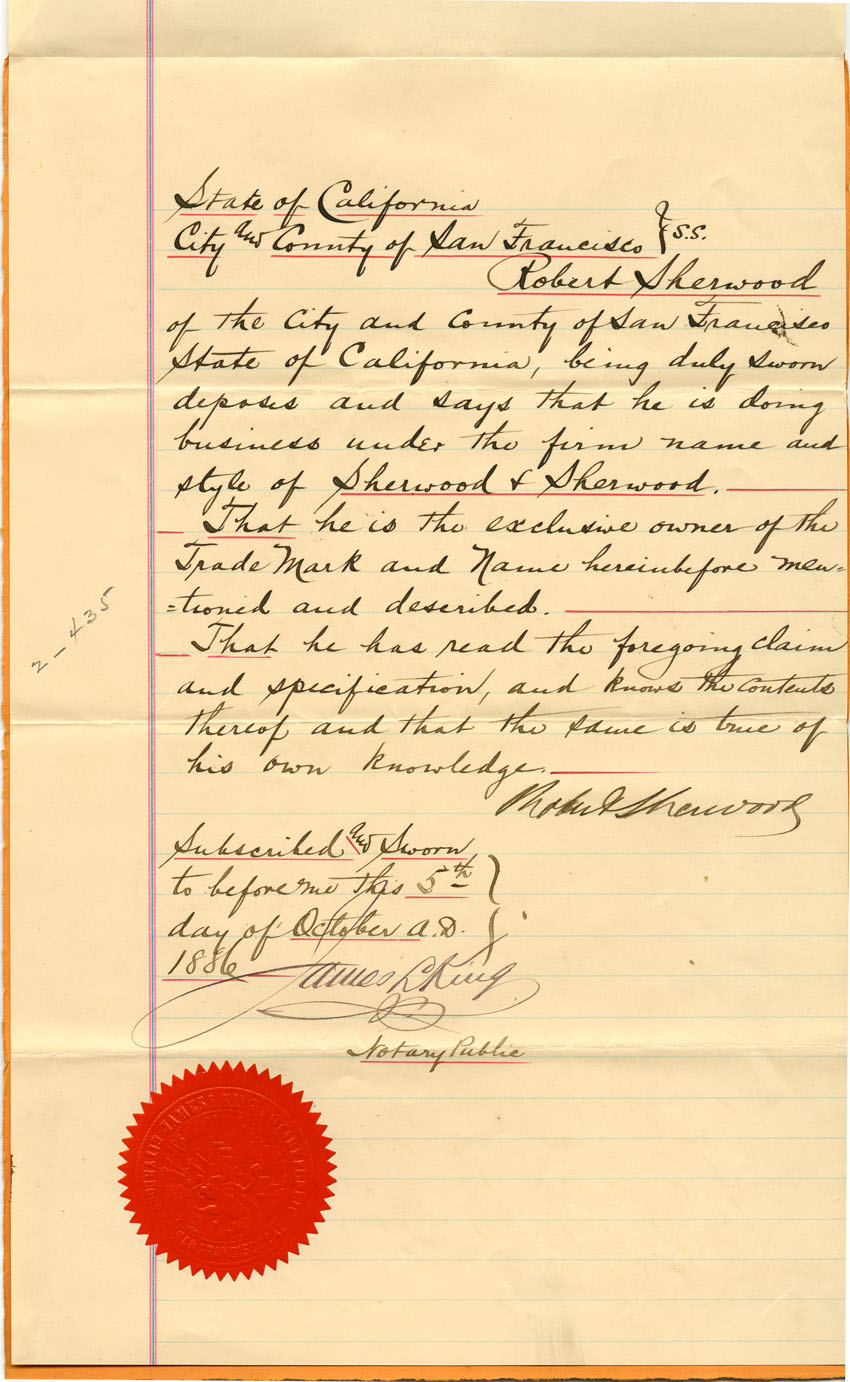 State of California
City and County of San Francisco } S.S.
Robert Sherwood
of the City and County of San Francisco
State of California, being duly sworn
deposes and says that he is doing
business under the firm name and
style of Sherwood & Sherwood.
That he is the exclusive owner of the
Trade Mark and Name hereinbefore men=
=tioned and described.
That he has read the foregoing claim
and specification, and knows the contents
thereof and that the same is true of
his own knowledge.
2-435
Robert Sherwood
Subscribed and Sworn
to before me this 5th
day of October A.D.
1886
James L King
Notary Public
SAN FRANCISCO, CAL.